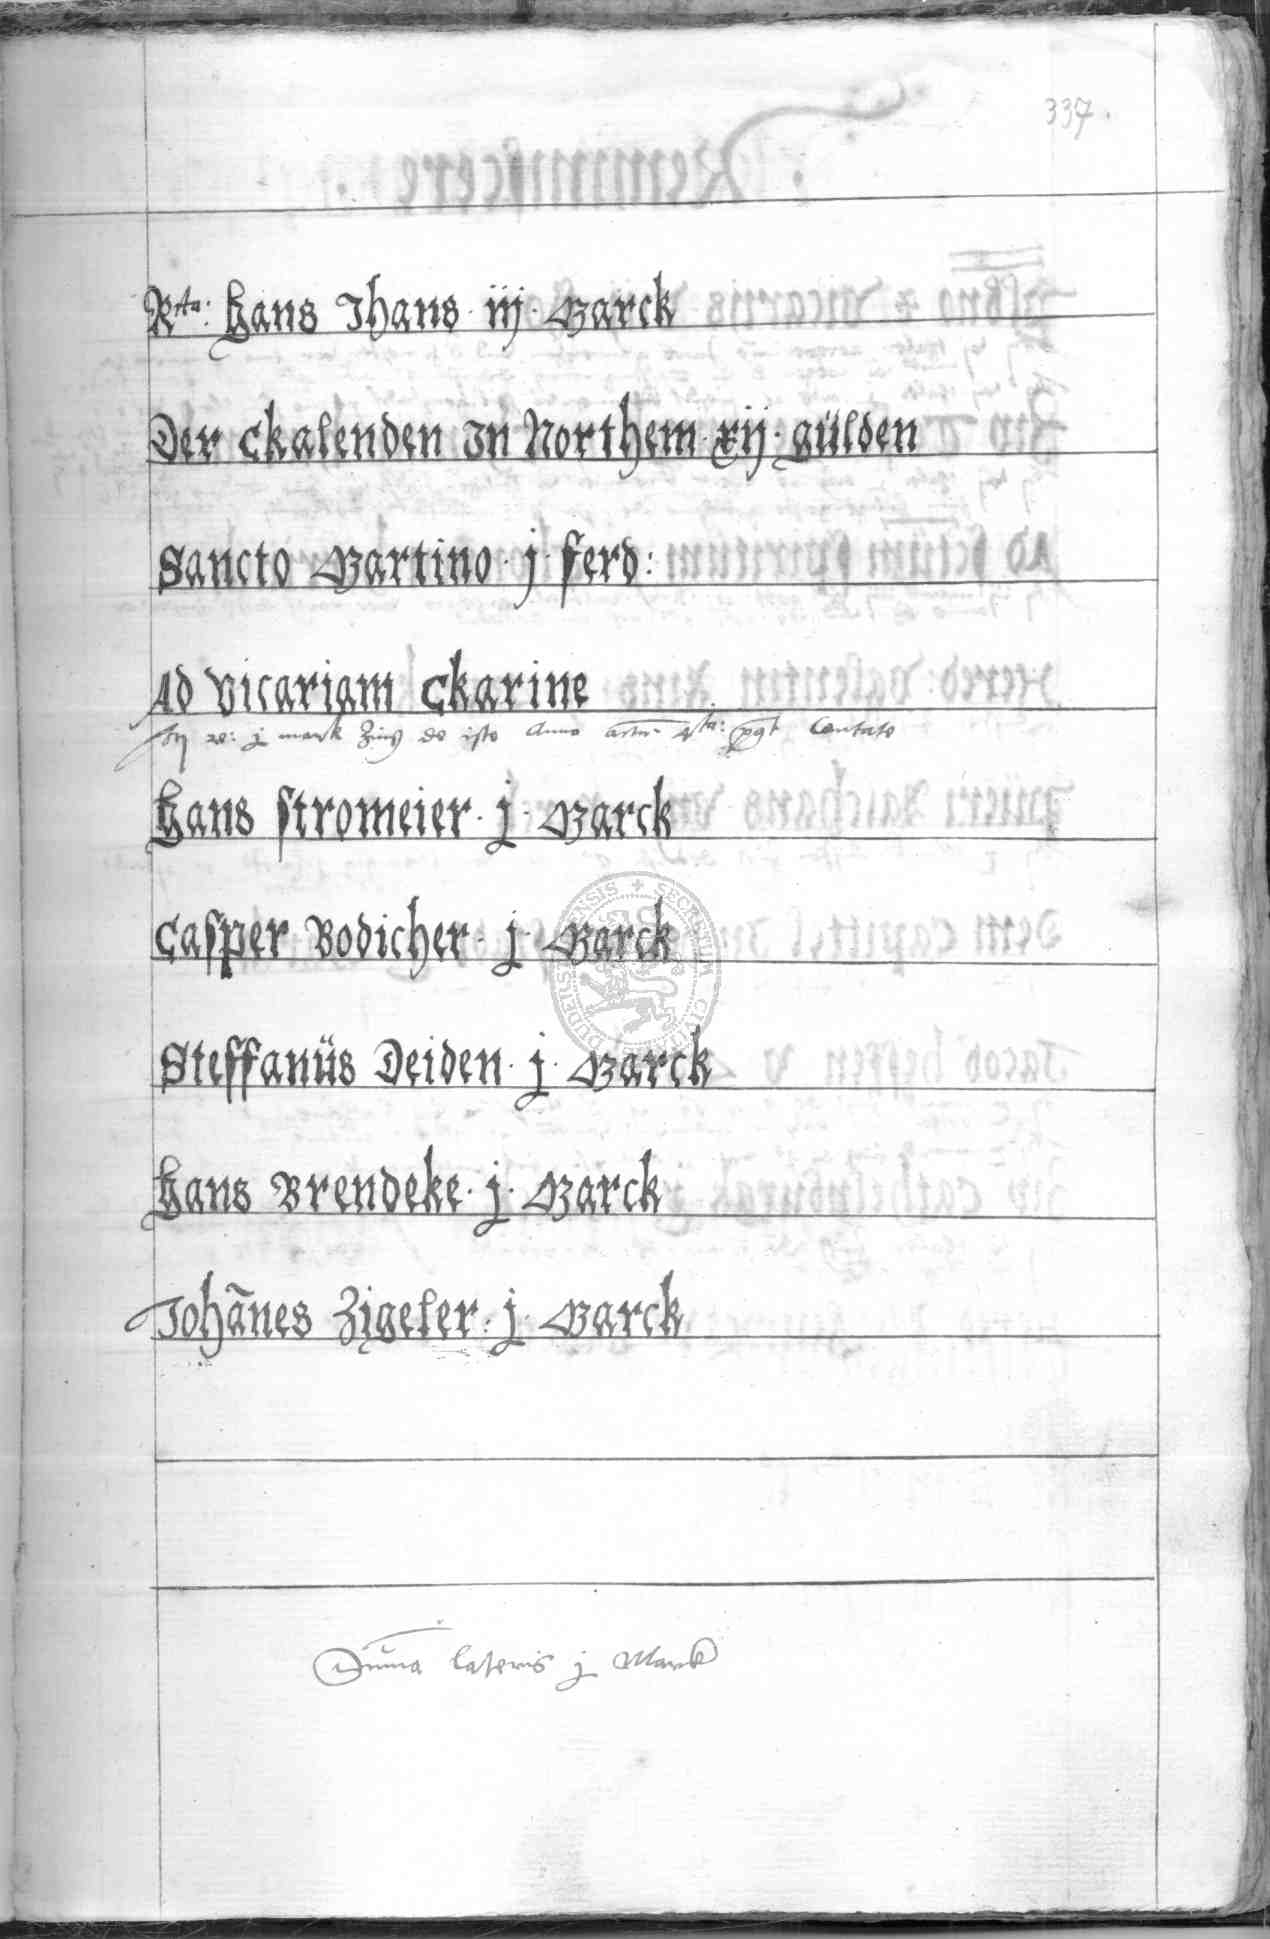 337.
R^ta: Hans Jhans · iij · Marck
Der Ckalenden Jn Northem · xij · gülden
Sancto Martino · j · ferd:
Ad vicariam Ckarine
j mark Zinß de isto Anno Cantate
Hans stromeier · j · Marck
Casper Bodicher · j · Marck
Steffanüs Deiden · j · Marck
Hans Brendeke · j · Marck
Johãnes Zigeler : j · Marck
Sum̄a lateris j Marck